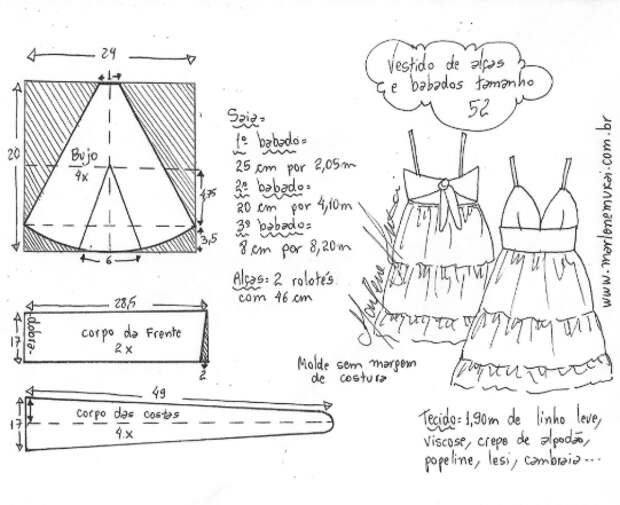 24
1
20
Bujo
4x
4,75
3,5
6
Vestido de alças
e babados tamanho
52
Saia=
1º babado=
25 cm por 2,05m
2º babado=
20 cm por 4,10m
3º babado=
8 cm por 8,20m
Alças: 2 rolotés
com 46 cm
28,5
17
dobra
corpo da Frente
2x
2
49
17
corpo das costas
4.x
Molde sem margem
de costura
Marlene Mukai
Tecido= 1,90m de linho leve,
viscose, crepe de algodão,
popeline, lesi, cambraia...
www.marlenemukai.com.br